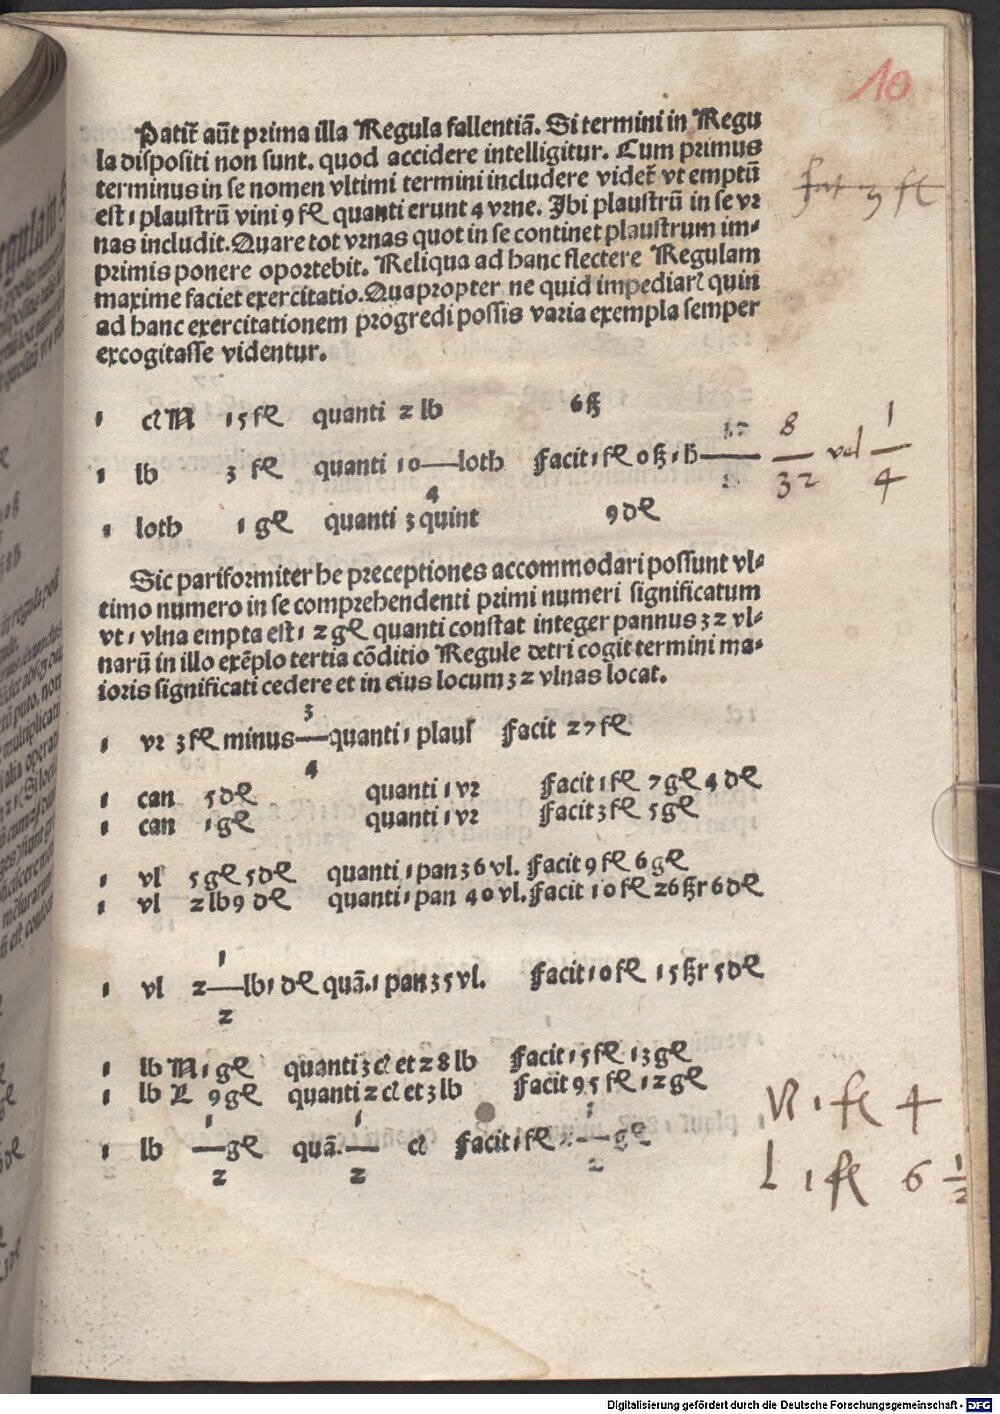 10
Patit̄ aūt prima illa Regula fallentiā. Si termini in Regu
la dispositi non sunt. quod accidere intelligitur. Cum primus
terminus in se nomen vltimi termini includere videt̄ vt emptū
est 1 plaustrū vini 9 fl quanti erunt 4 vrne. Ibi plaustrū in se vr
nas includit. Quare tot vrnas quot in se continet plaustrum im-
primis ponere oportebit. Reliqua ad hanc flectere Regulam
maxime faciet exercitatio. Quapropter ne quid impediar̄ quin
ad hanc exercitationem progredi possis varia exempla semper
excogitasse videntur.
fat 3 fl
1 ct N 15 fl quanti 2 lb 6 ß
1 lb 3 fl quanti 10 — loth facit 1 fl 0 ß 1 h — 8/32 vel 1/4
1 loth 1 gl quanti 3 4 quint 9 dl
Sic pariformiter he preceptiones accommodari possunt vl-
timo numero in se comprehendenti primi numeri significatum
vt 1 vlna empta est 12 gl quanti constat integer pannus 32 vl-
narū in illo exēplo tertia cōditio Regule detri cogit termini ma-
ioris significati cedere et in eius locum 32 vlnas locat.
1 vr 3 fl minus 3/4 quanti 1 plaus facit 27 fl
1 can 5 dl quanti 1 vr facit 1 fl 7 gl 4 dl
1 can 1 gl quanti 1 vr facit 3 fl 5 gl
1 vl 5 gl 5 dl quanti 1 pan 36 vl. facit 9 fl 6 gl
1 vl 2 lb 9 dl quanti 1 pan 40 vl. facit 10 fl 26 ßr 6 dl
1 vl 2 1/2 lb 1 dl quā. 1 pan 35 vl. facit 10 fl 15 ßr 5 dl
1 lb N 1 gl quanti 3 ct et 28 lb facit 15 fl 13 gl
1 lb L 9 gl quanti 2 ct et 3 lb facit 95 fl 12 gl
1 lb 1/2 gl quā. 1/2 ct facit 1 fl 2 1/2 gl
N 1 fl 4
L 1 fl 6 1/2
Digitalisierung gefördert durch die Deutsche Forschungsgemeinschaft - DFG